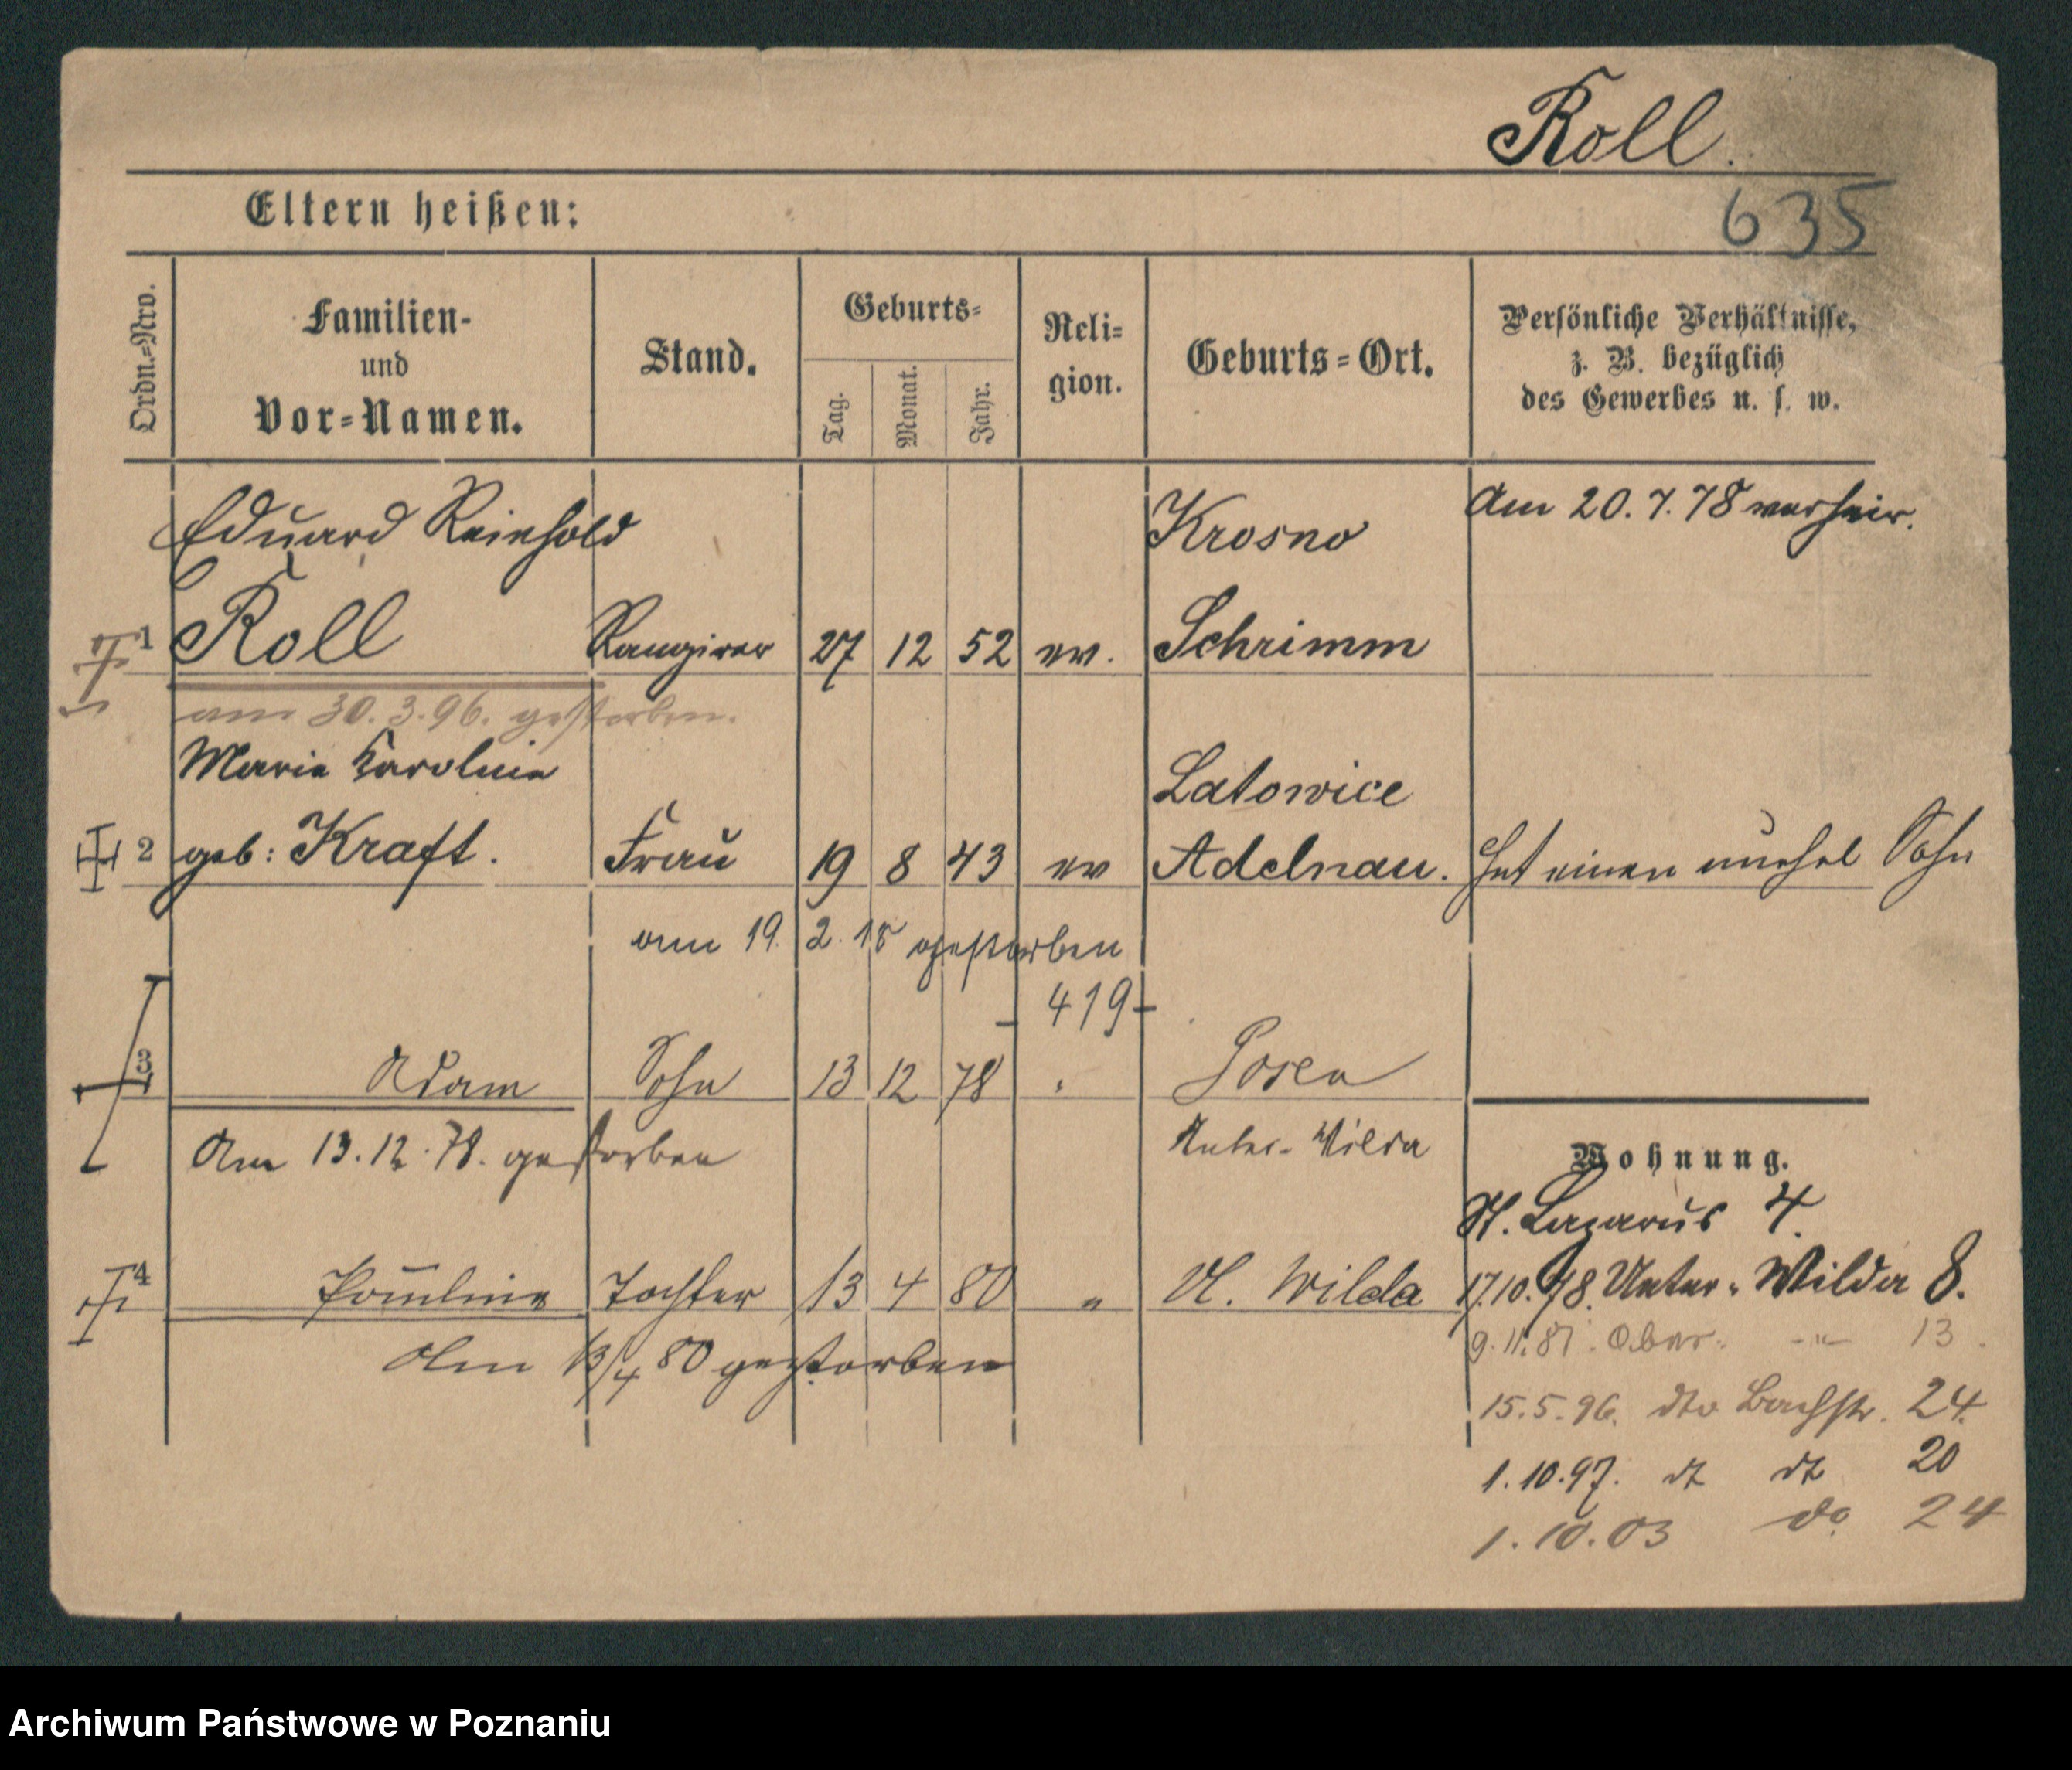 Roll.
635
Eltern heißen:
Ordn.=Nro.
Familien-
und
Vor=Namen.
Stand.
Geburts=
Tag.
Monat.
Jahr.
Reli=
gion.
Geburts=Ort.
Persönliche Verhältnisse,
z. B. bezüglich
des Gewerbes u. s. w.
Eduard Reinhold
Krosno
Am 20.7.78 verheir.
1 Roll Rangirer 27 12 52 ev. Schrimm
am 30.3.96. gestorben.
Marie Karoline
Latowice
2 geb: Kraft. Frau 19 8 43 ev Adelnau. Hat einen unehel Sohn
am 19. 2. 18 gestorben
- 419 -
3 Adam Sohn 13 12 78 " Posen
Am 13.12.78. gestorben
Unter-Wilda
Wohnung.
St. Lazarus 4.
4 Pauline Tochter 13 4 80 " U. Wilda
17.10.78. Unter-Wilda 8.
Am 13/4 80 gestorben
9.11.81. Ober- -"- 13.
15.5.96. dto Bachstr. 24.
1.10.97. dt dt 20
1.10.03 do 24
Archiwum Państwowe w Poznaniu